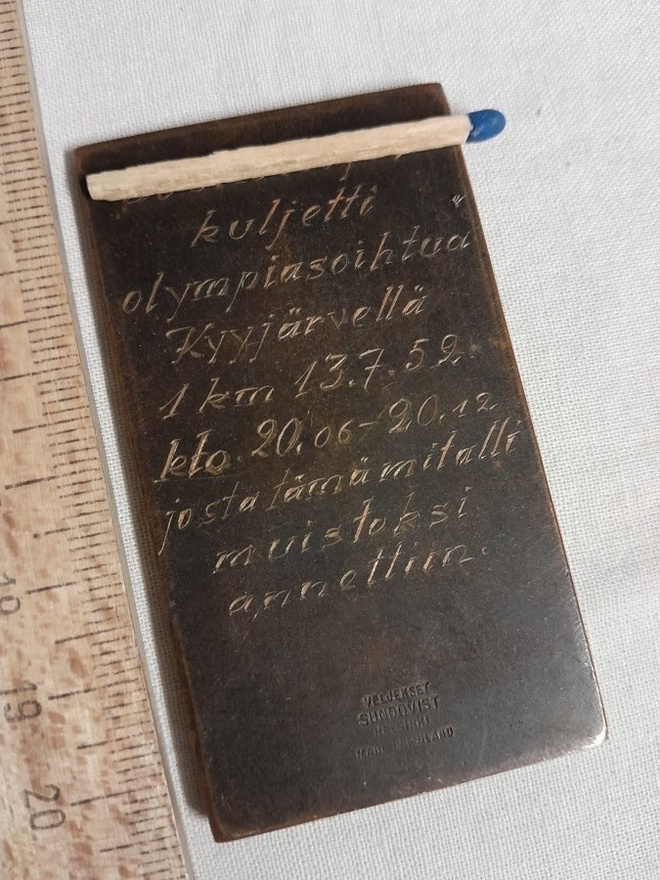 kuljetti
olympiasoihtua
Kyyjärvellä
1 km 13.7.52.
klo. 20.06-20.12
josta tämä mitalli
muistoksi
annettiin.
VELJEKSET
SUNDQVIST
HELSINKI
MADE IN FINLAND
18
19
20